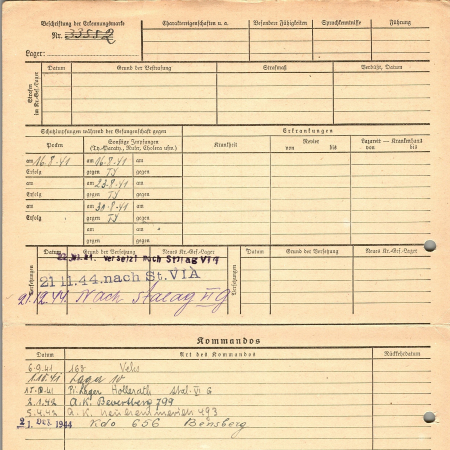 Beschriftung der Erkennungsmarke
Nr.
Lager:
Charaktereigenschaften u. a.
Besondere Fähigkeiten
Sprachkenntnisse
Führung
Strafen im Kr.-Gef.-Lager
Datum
Grund der Bestrafung
Strafmaß
Verbüßt, Datum
Schutzimpfungen während der Gefangenschaft gegen
Erkrankungen
Pocken
Sonstige Impfungen
(Ty.-Paraty., Ruhr, Cholera usw.)
Krankheit
Revier
von bis
Lazarett — Krankenhaus
von bis
am 16.8.41 am 16.8.41 am
Erfolg gegen TY gegen
am am 23.8.41 am
Erfolg gegen TY gegen
am am 31.8.41 am
Erfolg gegen TY gegen
Versetzungen
Datum
Grund der Versetzung
Neues Kr.-Gef.-Lager
Versetzungen
Datum
Grund der Versetzung
Neues Kr.-Gef.-Lager
Versetzt nach Stalag VI G
21.11.44. nach St. VI A
21.12.44 Nach Stalag VI G
Kommandos
Datum
Art des Kommandos
Rückkehrdatum
6.9.41
Lager
Lager Hollerath Stal. VI G
2.1.42 A.K. 799
5.4.42 A.K. 493
21. Dez. 1944 Kdo 656 Bensberg